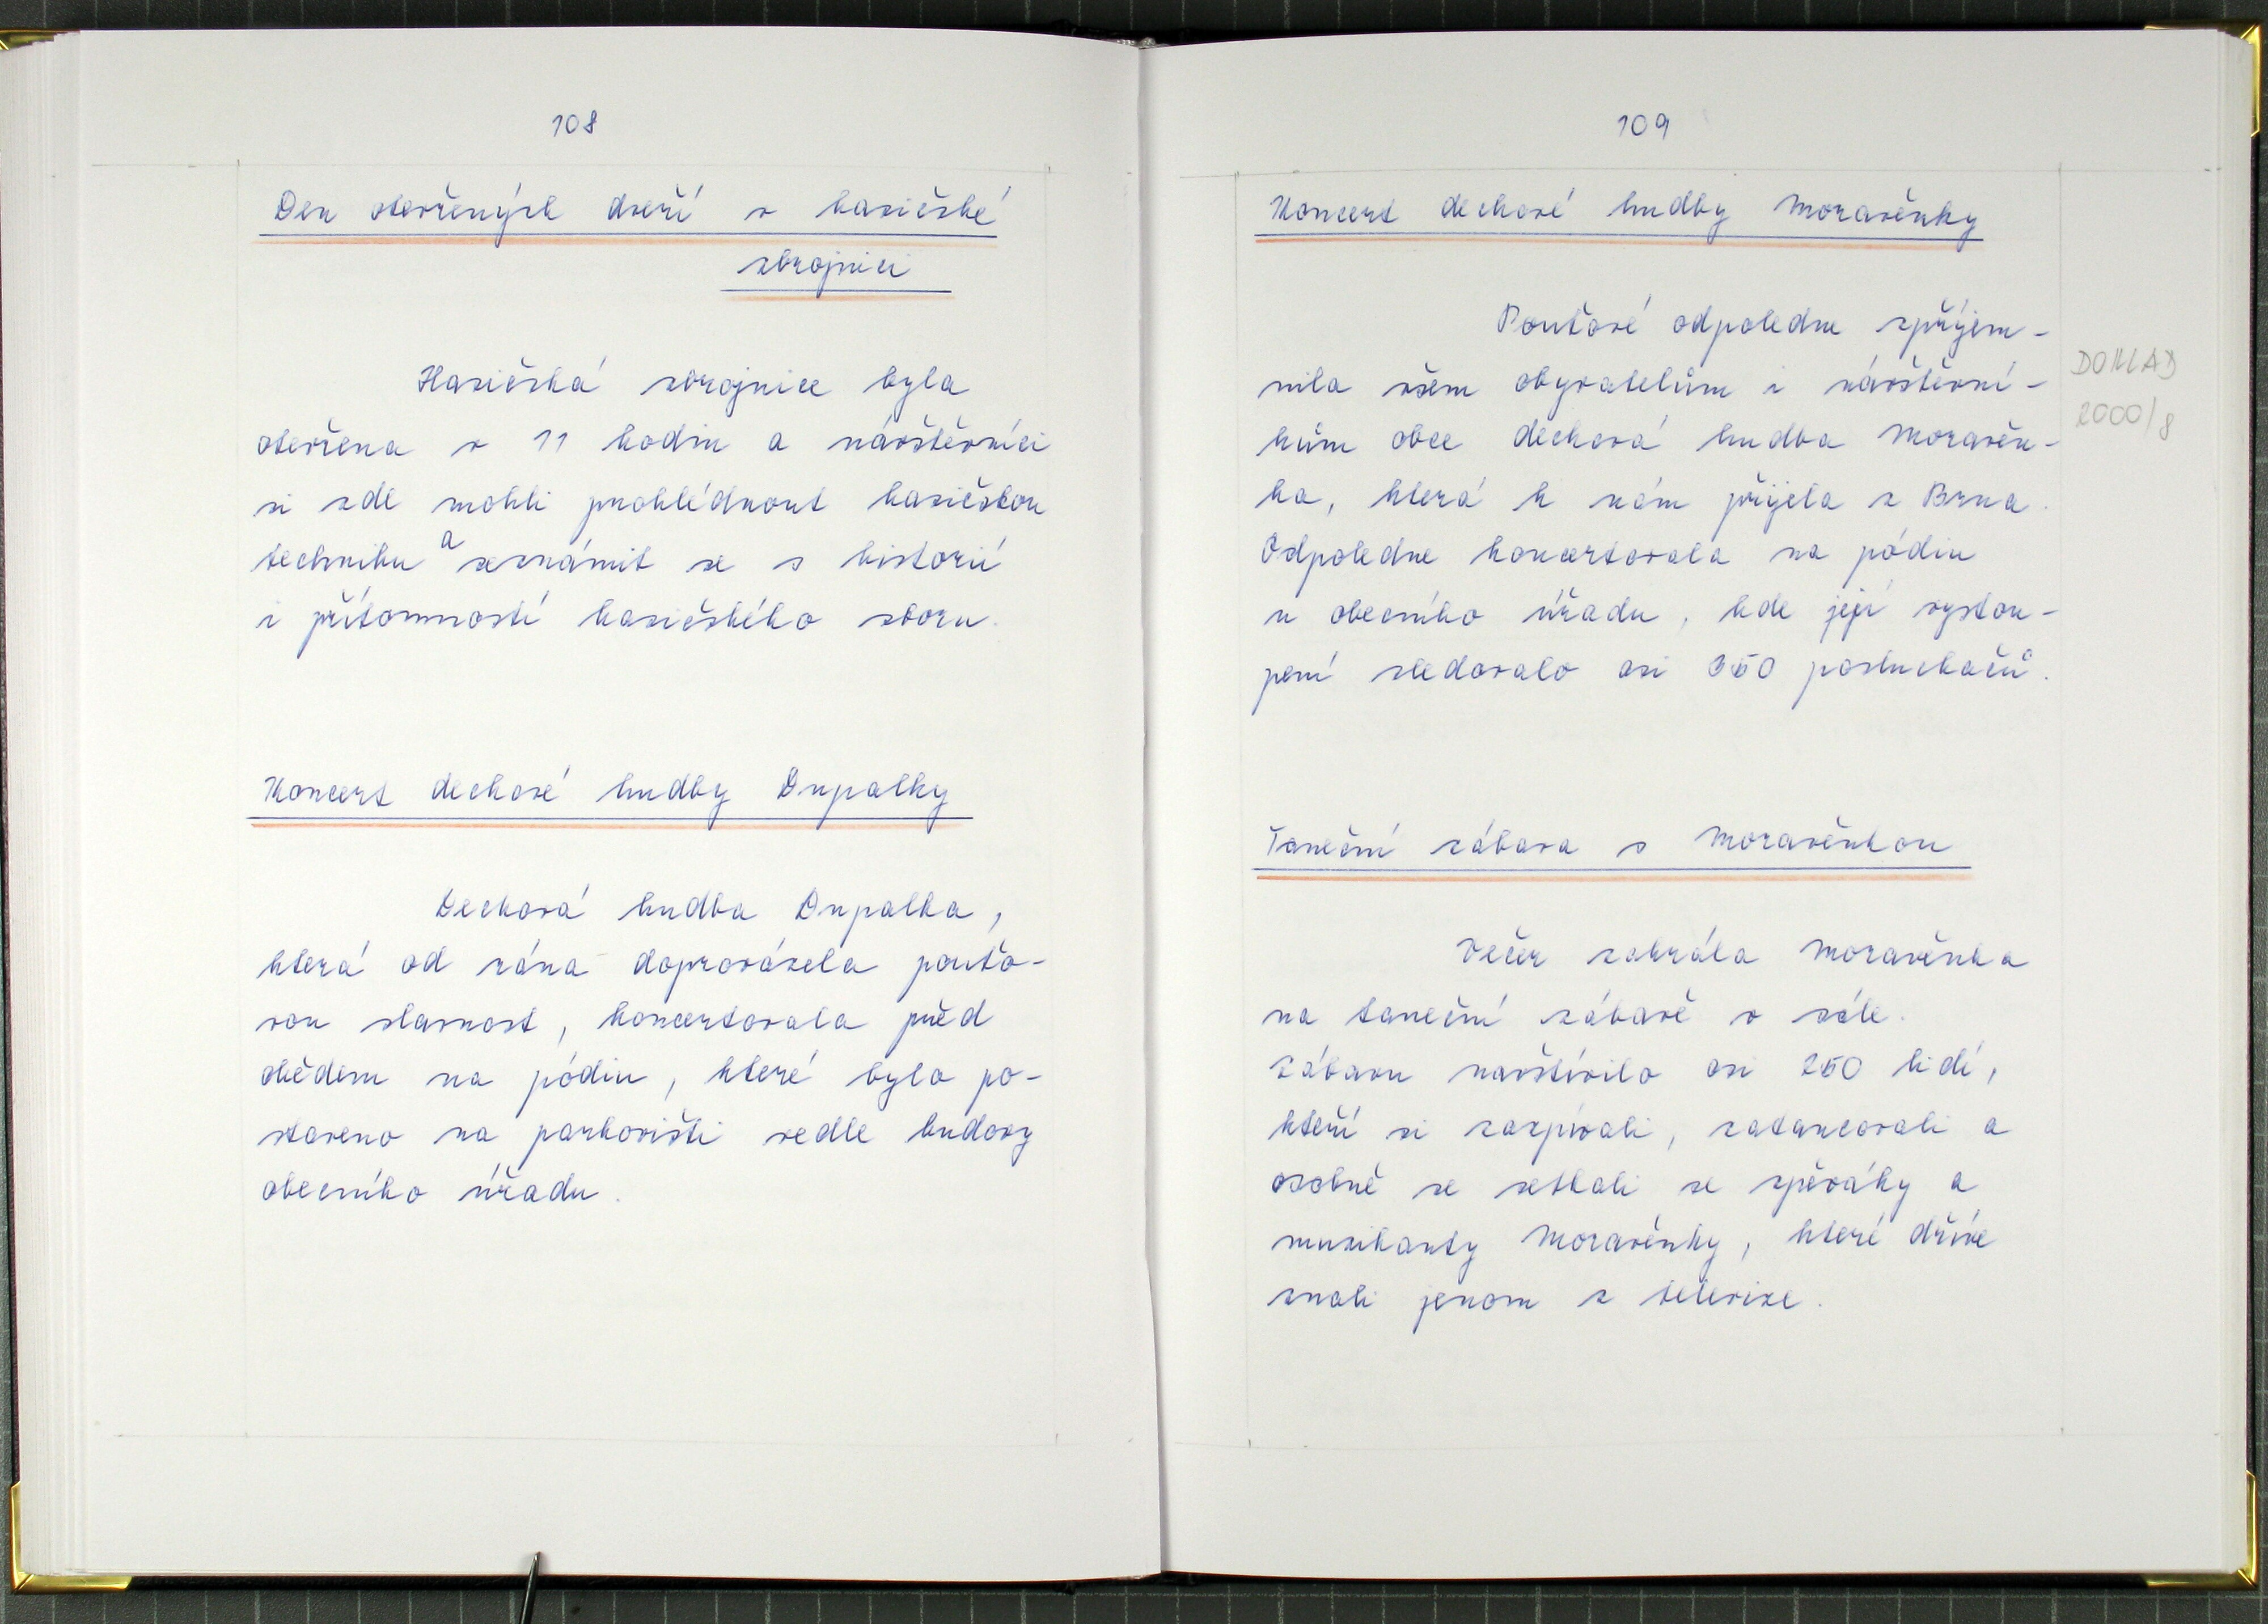 108
Den otevřených dveří v hasičské
zbrojnici
Hasičská zbrojnice byla
otevřena v 11 hodin a návštěvníci
si zde mohli prohlédnout hasičskou
techniku a seznámit se s historií
i přítomností hasičského sboru.
Koncert dechové hudby Dupalky
Dechová hudba Dupalka,
která od rána doprovázela pouťo-
vou slavnost, koncertovala před
obědem na pódiu, které bylo po-
staveno na parkovišti vedle budovy
obecního úřadu.
109
Koncert dechové hudby Moravěnky
Pouťové odpoledne zpříjem-
nila všem obyvatelům i návštěvní-
kům obce dechová hudba Moravěn-
ka, která k nám přijela z Brna.
Odpoledne koncertovala na pódiu
u obecního úřadu, kde její vystou-
pení sledovalo asi 350 posluchačů.
DOKLAD
2000/8
Taneční zábava s Moravěnkou
Večer zahrála Moravěnka
na taneční zábavě v sále.
Zábavu navštívilo asi 250 lidí,
kteří si zazpívali, zatancovali a
osobně se setkali se zpěváky a
muzikanty Moravěnky, které dříve
znali jenom z televize.